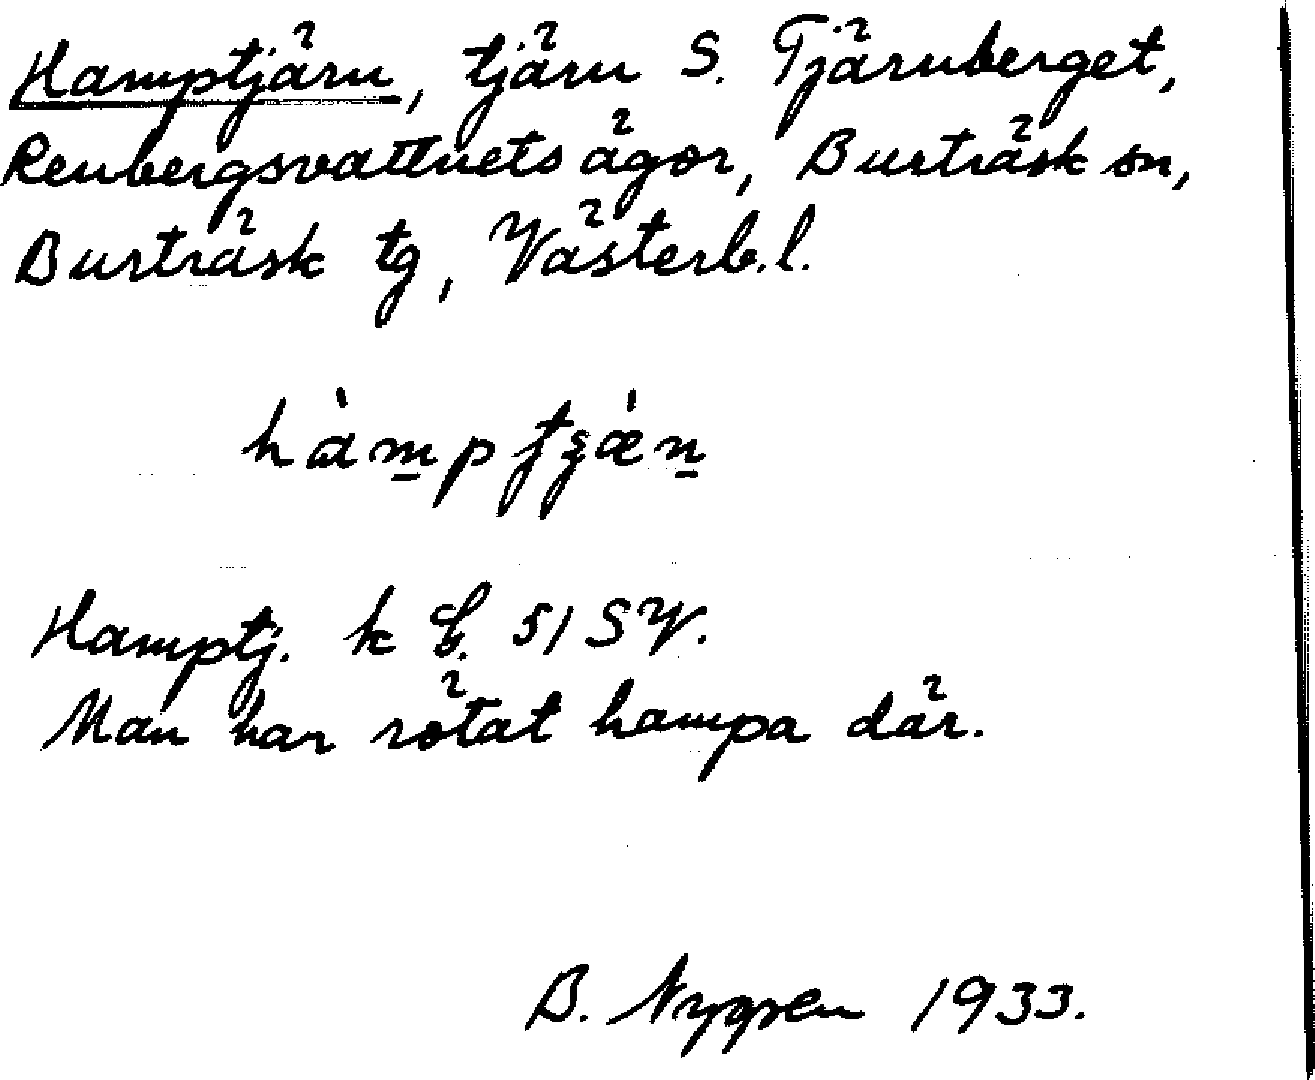 Hamptjärn, tjärn S. Tjärnberget,
Renbergsvattnets ägor, Burträsk sn,
Burträsk tg, Västerb.l.
hàmptʃæ̀n
Hamptj. k 51 SV.
Man har rötat hampa där.
B. Nygren 1933.